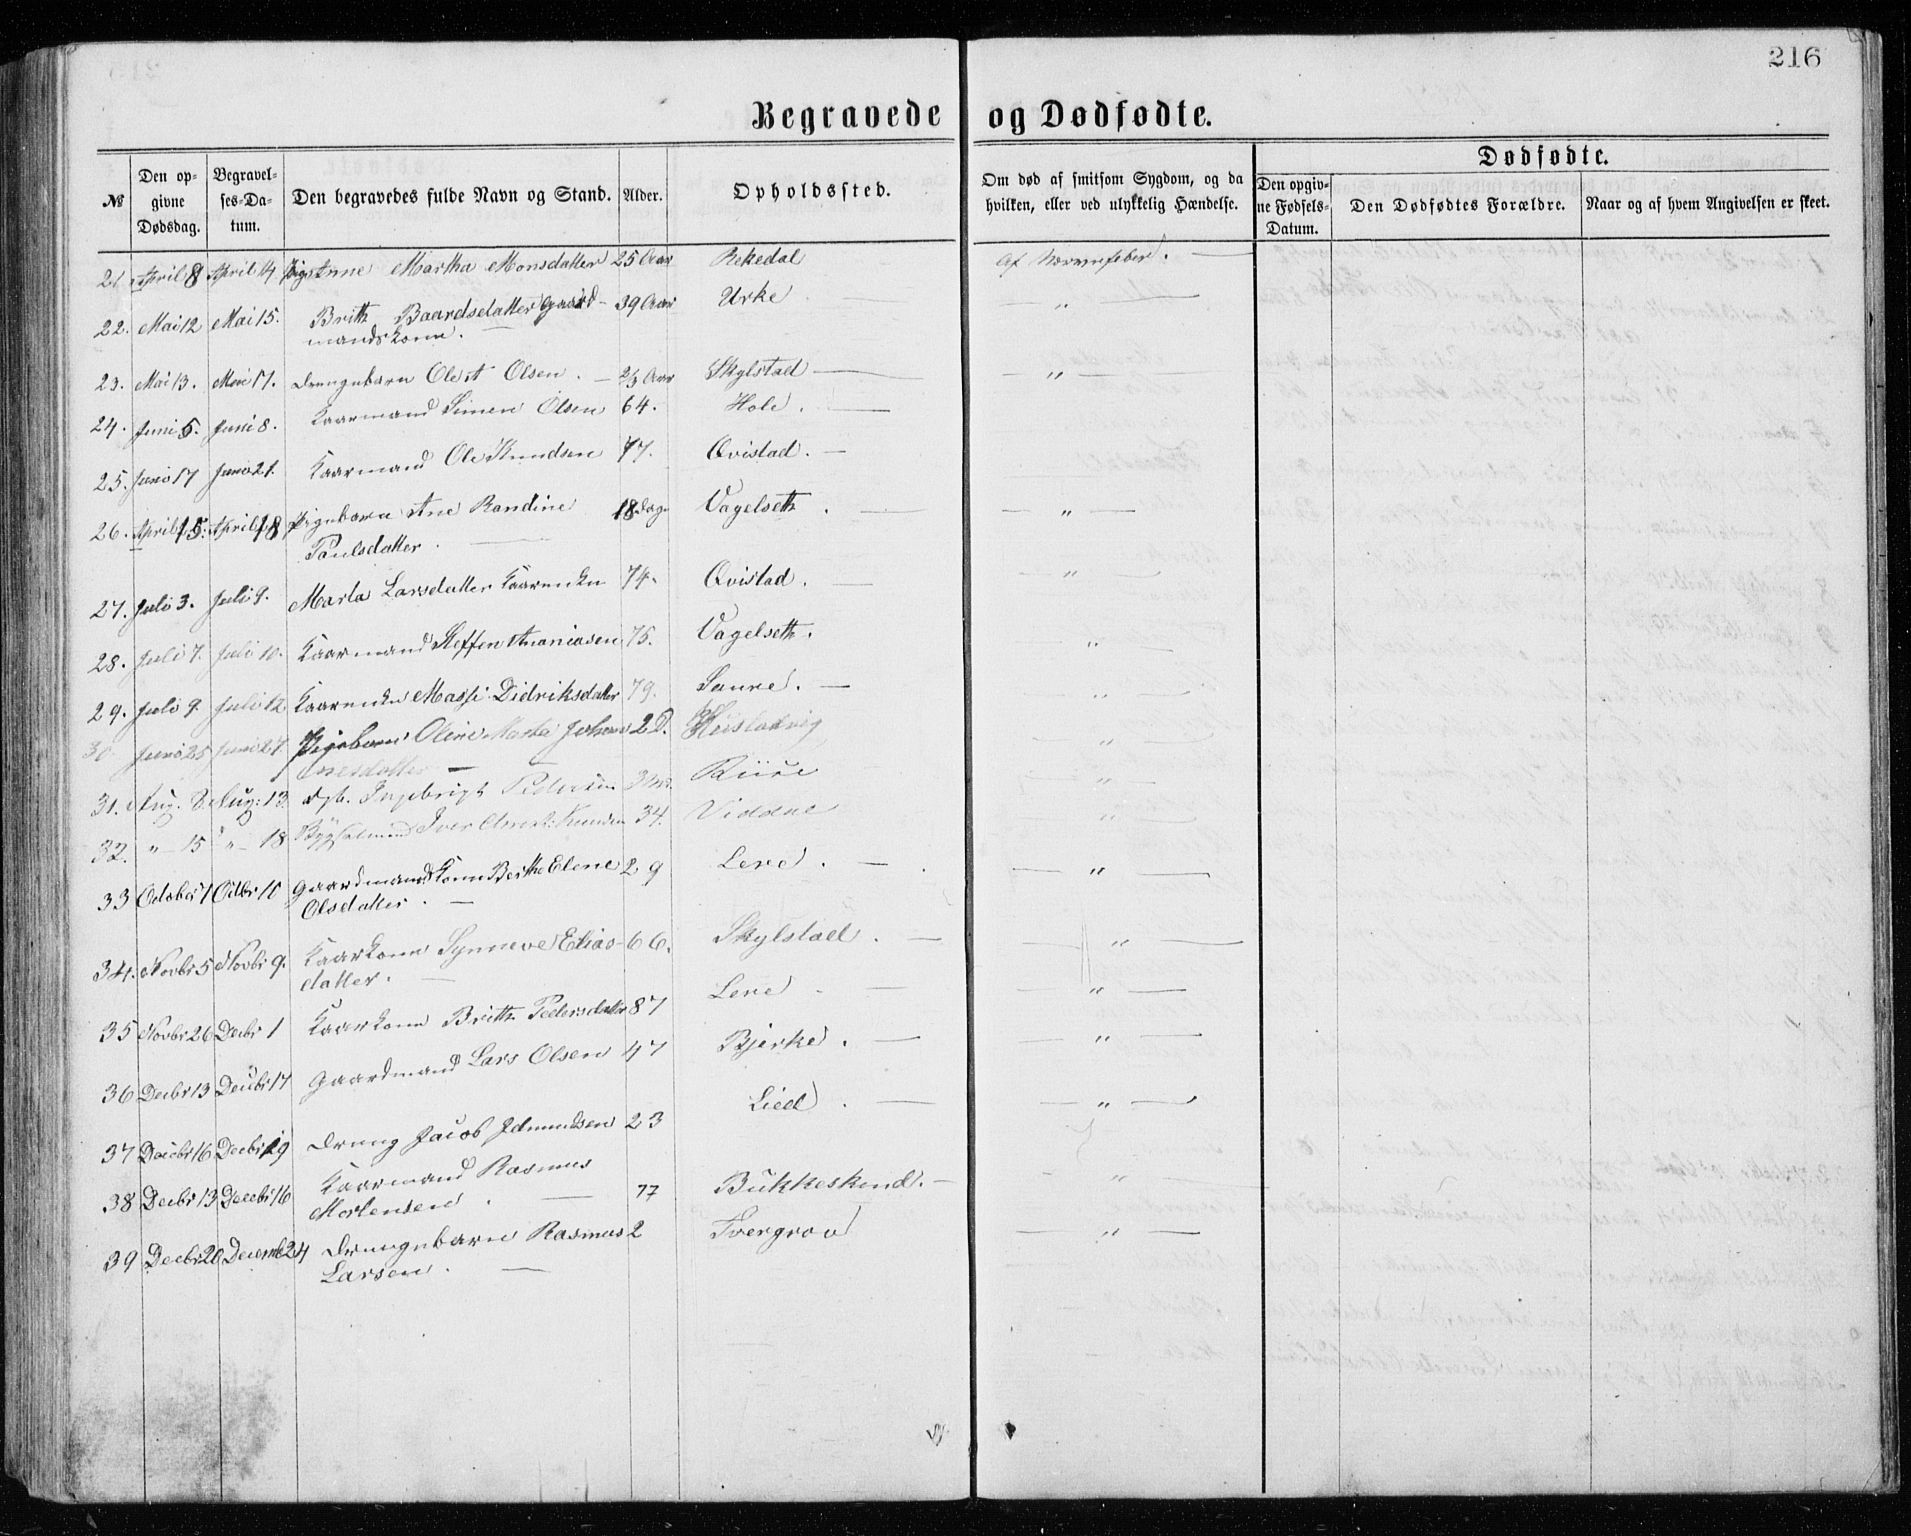 216
Begravede og Dødfødte.
№ Den opgivne Dødsdag. Begravelses-Datum. Den begravedes fulde Navn og Stand. Alder. Opholdssted. Om død af smitsom Sygdom, og da hvilken, eller ved ulykkelig Hændelse. Dødfødte. Den opgivne Fødsels-Datum. Den Dødfødtes Forældre. Naar og af hvem Angivelsen er skeet.
21 April 8 April 14 Pige Anne Martha Monsdatter 25 Aar Rekedal Af Nervefeber.
22. Mai 12 Mai 15. Britte Baardsdatter Gaard- 39 Aar Urke — " —
mandskone.
23. Mai 13. Mai 17. Drengebarn Ole A Olsen. — 2/3 Aar Skylstad — — " —
24. Juni 5. Juni 8. Kaarmand Simen Olsen 64. Hole. —
25. Juni 17 Juni 21. Kaarmand Ole Knudsen 77. Qvistad. —
26. April 15. April 18 Pigebarn Ane Randine 18 Dage Vagelseth. — " —
Paulsdatter. —
27. Juli 3. Juli 9. Marta Larsdatter Kaarenke 74. Qvistad. — — " —
28. Juli 7. Juli 10. Kaarmand Steffen Ananiasen 75. Vagelseth. "
29. Juli 9. Juli 12 Kaarenke Massi Didriksdatter 79. Saure. — "
30. Juni 25 Juni 27. Pigebarn Oline Marta Johan- 2 D. Hustadvig — " —
nesdatter —
31. Aug. 8 Aug: 13. Dgb. Ingebrigt Pedersen Riise "
32. " — 15 " — 18 Bygselmand Iver Knudsen 34. Viddal "
33 October 7 Octbr 10 Gaardmandskone Berthe Elene 29 Lere. — — " —
Olsdatter. —
34. Novbr 5 Novbr 9. Kaarkone Synneve Elias- 66. Skylstad. — — " —
datter. —
35 Novbr 26 Decbr 1 Kaarkone Brithe Pedersdatter 87 Lere. — — " —
36 Decbr 13 Decbr 17 Gaardmand Lars Olsen 47 Bjerke. — — " —
37 Decbr 16 Decbr 19 Dreng Jacob Edmundsen 23 Lied. — — " —
38 Decbr 13 Decebr 16 Kaarmand Rasmus 77 Bukkeskind. — — " —
Mortensen. —
39 Decbr 20 Decemb 24 Drengebarn Rasmus 2 Tvergrov — " —
Larsen. —